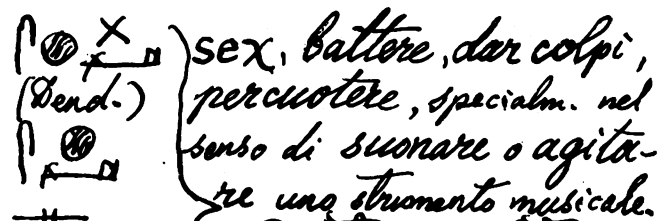 sex, battere, dar colpi,
(Dend.) percuotere, specialm. nel
senso di suonare o agita-
re uno strumento musicale.